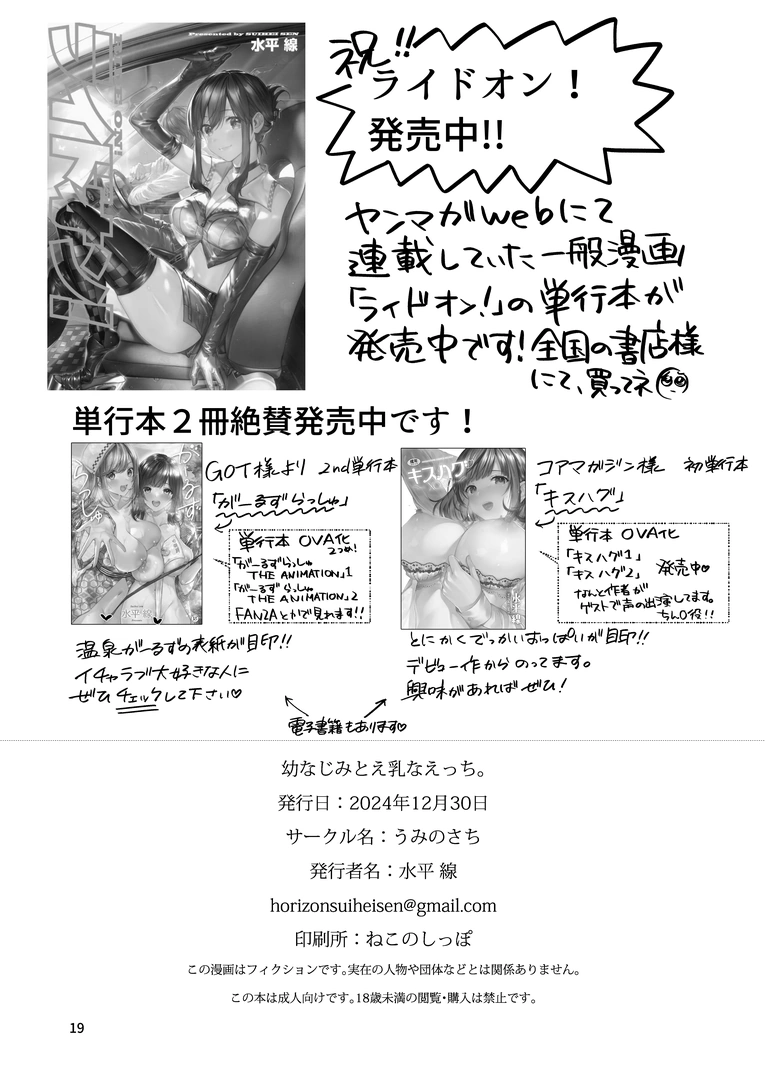 Presented by SUIHEI SEN
水平 線
ライドオン
RIDE ON!
祝!!
ライドオン！
発売中!!
ヤンマガwebにて
連載していた一般漫画
「ライドオン!」の単行本が
発売中です!全国の書店様
にて、買ってネ
単行本２冊絶賛発売中です！
がーるずらっしゅ
水平 線
GOT様より 2nd単行本
「がーるずらっしゅ」
単行本 OVA化
2つめ!
「がーるずらっしゅ
THE ANIMATION」1
「がーるずらっしゅ
THE ANIMATION」2
FANZAとかで見れます!!
温泉がーるずの表紙が目印!!
イチャラブ大好きな人に
ぜひチェックして下さい♡
キスハグ
水平線
コアマガジン様 初単行本
「キスハグ」
単行本 OVA化
「キスハグ1」
「キスハグ2」 発売中♡
なんと作者が
ゲストで声の出演してます.
ちん〇役!!
とにかくでっかいおっぱいが目印!!
デビュー作からのってます。
興味があればぜひ!
電子書籍もあります♡
幼なじみとえ乳なえっち。
発行日：2024年12月30日
サークル名：うみのさち
発行者名：水平 線
horizonsuiheisen@gmail.com
印刷所：ねこのしっぽ
この漫画はフィクションです。実在の人物や団体などとは関係ありません。
この本は成人向けです。18歳未満の閲覧・購入は禁止です。
19